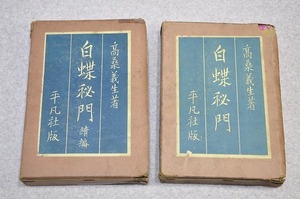 高桑義生著
白蝶秘門
續編
平凡社版
高桑義生著
白蝶秘門
平凡社版